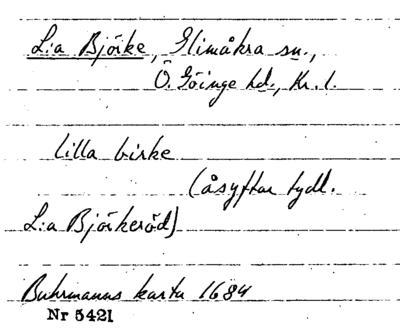 L:a Björke, Glimåkra sn.,
Ö. Göinge hd., Kr. l.
lilla birke
(åsyftar tydl.
L:a Björkeröd)
Buhrmanns karta 1684
Nr 5421